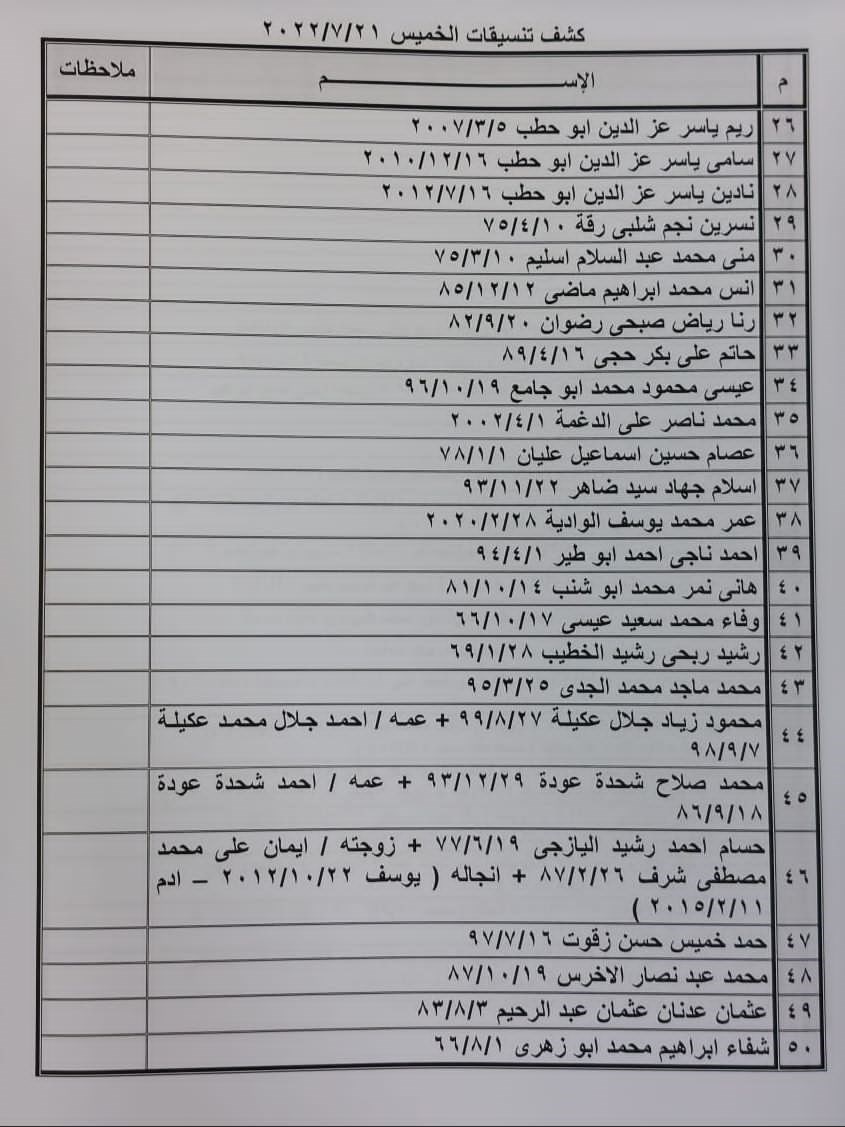 كشف تنسيقات الخميس ٢٠٢٢/٧/٢١
م الإســــــــــــم ملاحظات
٢٦ ريم ياسر عز الدين ابو حطب ٢٠٠٧/٣/٥
٢٧ سامى ياسر عز الدين ابو حطب ٢٠١٠/١٢/١٦
٢٨ نادين ياسر عز الدين ابو حطب ٢٠١٢/٧/١٦
٢٩ نسرين نجم شلبى رقة ٧٥/٤/١٠
٣٠ منى محمد عبد السلام اسليم ٧٥/٣/١٠
٣١ انس محمد ابراهيم ماضى ٨٥/١٢/١٢
٣٢ رنا رياض صبحى رضوان ٨٢/٩/٢٠
٣٣ حاتم على بكر حجى ٨٩/٤/١٦
٣٤ عيسى محمود محمد ابو جامع ٩٦/١٠/١٩
٣٥ محمد ناصر على الدغمة ٢٠٠٢/٤/١
٣٦ عصام حسين اسماعيل عليان ٧٨/١/١
٣٧ اسلام جهاد سيد ضاهر ٩٣/١١/٢٢
٣٨ عمر محمد يوسف الوادية ٢٠٢٠/٢/٢٨
٣٩ احمد ناجى احمد ابو طير ٩٤/٤/١
٤٠ هانى نمر محمد ابو شنب ٨١/١٠/١٤
٤١ وفاء محمد سعيد عيسى ٦٦/١٠/١٧
٤٢ رشيد ربحى رشيد الخطيب ٦٩/١/٢٨
٤٣ محمد ماجد محمد الجدى ٩٥/٣/٢٥
٤٤ محمود زياد جلال عكيلة ٩٩/٨/٢٧ + عمه / احمد جلال محمد عكيلة
٩٨/٩/٧
٤٥ محمد صلاح شحدة عودة ٩٣/١٢/٢٩ + عمه / احمد شحدة عودة
٨٦/٩/١٨
٤٦ حسام احمد رشيد اليازجى ٧٧/٦/١٩ + زوجته / ايمان على محمد
مصطفى شرف ٨٧/٢/٢٦ + انجاله ( يوسف ٢٠١٢/١٠/٢٢ – ادم
٢٠١٥/٢/١١ )
٤٧ حمد خميس حسن زقوت ٩٧/٧/١٦
٤٨ محمد عبد نصار الاخرس ٨٧/١٠/١٩
٤٩ عثمان عدنان عثمان عبد الرحيم ٨٣/٨/٣
٥٠ شفاء ابراهيم محمد ابو زهرى ٦٦/٨/١